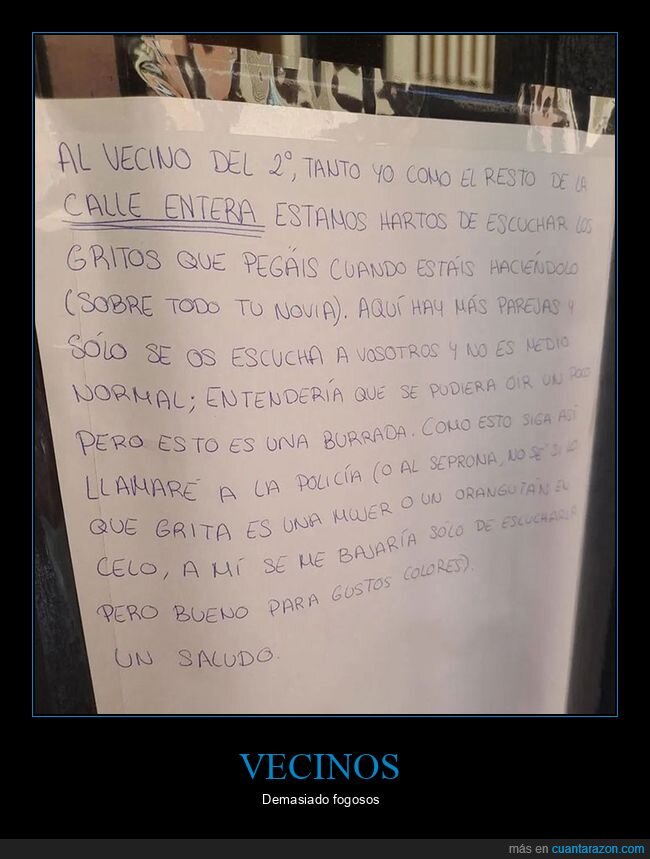 AL VECINO DEL 2º, TANTO YO COMO EL RESTO DE LA
CALLE ENTERA ESTAMOS HARTOS DE ESCUCHAR LOS
GRITOS QUE PEGÁIS CUANDO ESTÁIS HACIÉNDOLO
(SOBRE TODO TU NOVIA). AQUÍ HAY MÁS PAREJAS Y
SÓLO SE OS ESCUCHA A VOSOTROS Y NO ES MEDIO
NORMAL; ENTENDERÍA QUE SE PUDIERA OIR UN POCO
PERO ESTO ES UNA BURRADA. COMO ESTO SIGA ASÍ
LLAMARÉ A LA POLICÍA (O AL SEPRONA, NO SÉ SI LO
QUE GRITA ES UNA MUJER O UN ORANGUTÁN EN
CELO, A MÍ SE ME BAJARÍA SÓLO DE ESCUCHARLA
PERO BUENO PARA GUSTOS COLORES).
UN SALUDO.
VECINOS
Demasiado fogosos
más en cuantarazon.com